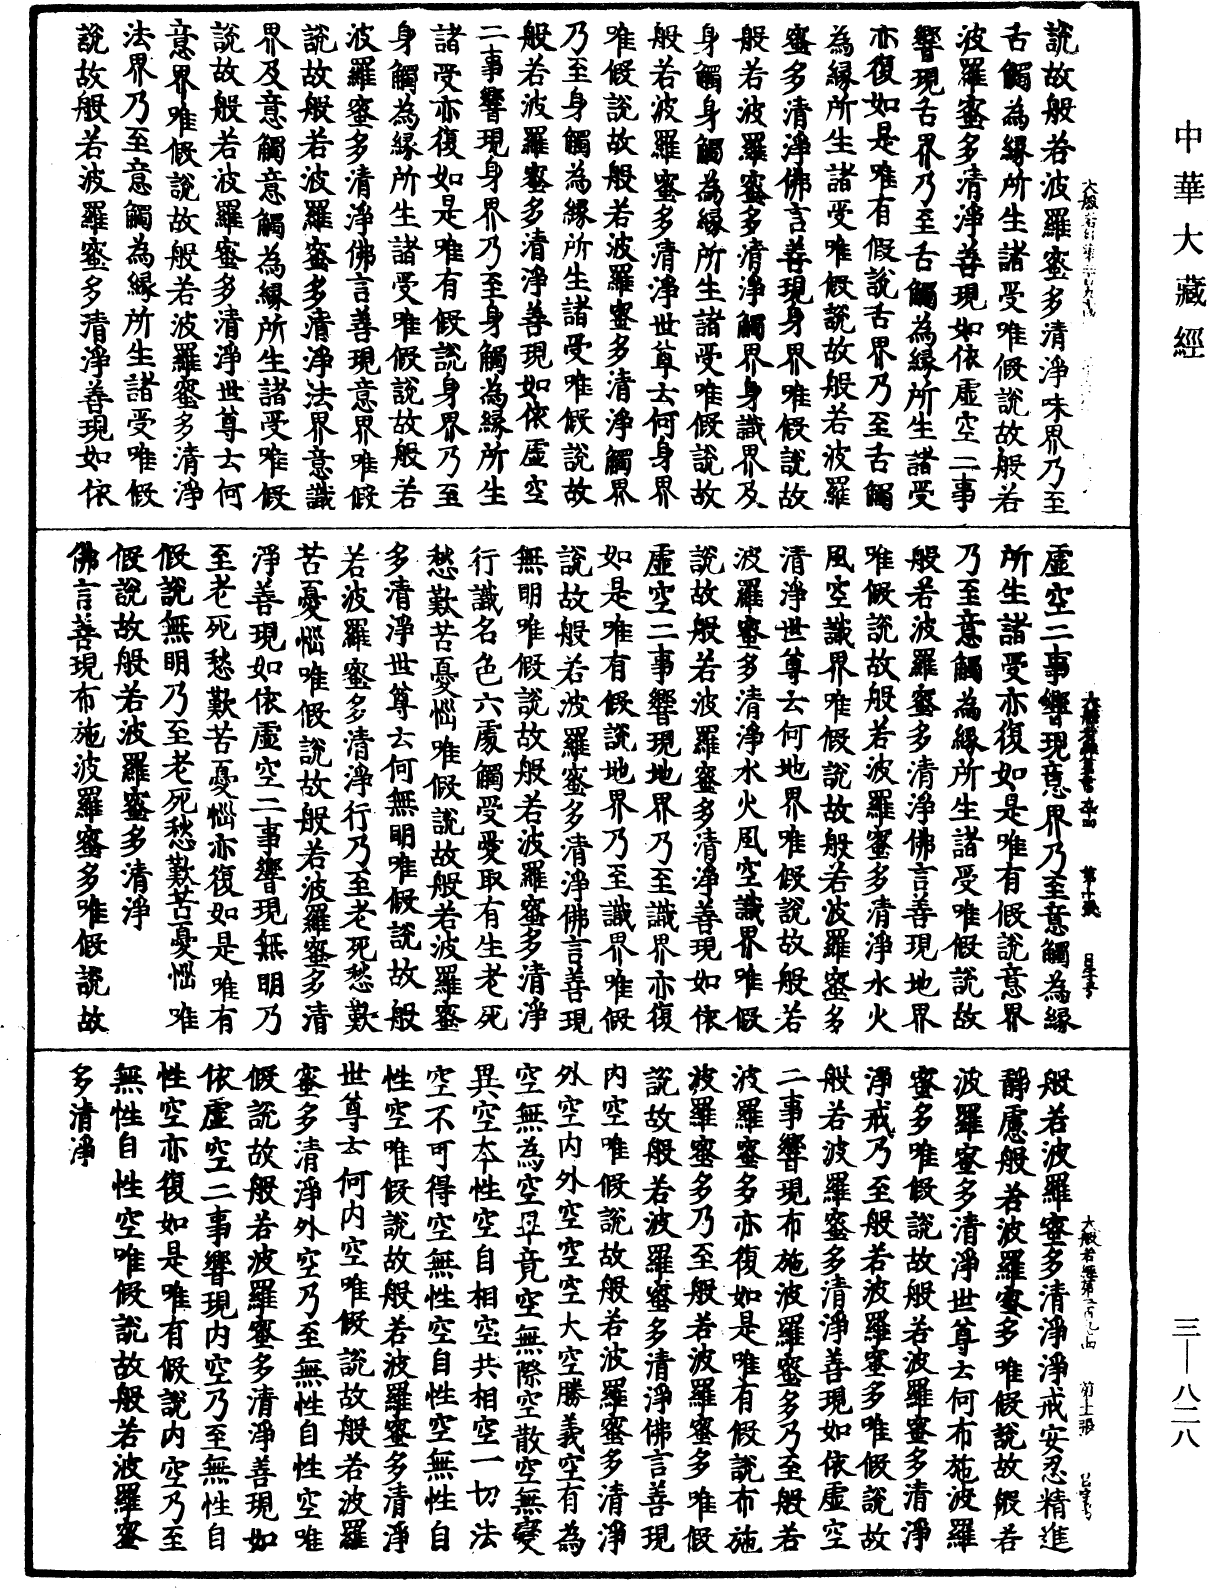 中華大藏經
說故般若波羅蜜多清淨味界乃至
舌觸為緣所生諸受唯假說故般若
波羅蜜多清淨善現如依虛空二事
響現舌界乃至舌觸為緣所生諸受
亦復如是唯有假說舌界乃至舌觸
為緣所生諸受唯假說故般若波羅
蜜多清淨佛言善現身界唯假說故
般若波羅蜜多清淨觸界身識界及
身觸身觸為緣所生諸受唯假說故
般若波羅蜜多清淨世尊云何身界
唯假說故般若波羅蜜多清淨觸界
乃至身觸為緣所生諸受唯假說故
般若波羅蜜多清淨善現如依虛空
二事響現身界乃至身觸為緣所生
諸受亦復如是唯有假說身界乃至
身觸為緣所生諸受唯假說故般若
波羅蜜多清淨佛言善現意界唯假
說故般若波羅蜜多清淨法界意識
界及意觸意觸為緣所生諸受唯假
說故般若波羅蜜多清淨世尊云何
意界唯假說故般若波羅蜜多清淨
法界乃至意觸為緣所生諸受唯假
說故般若波羅蜜多清淨善現如依
虛空二事響現意界乃至意觸為緣
所生諸受亦復如是唯有假說意界
乃至意觸為緣所生諸受唯假說故
般若波羅蜜多清淨佛言善現地界
唯假說故般若波羅蜜多清淨水火
風空識界唯假說故般若波羅蜜多
清淨世尊云何地界唯假說故般若
波羅蜜多清淨水火風空識界唯假
說故般若波羅蜜多清淨善現如依
虛空二事響現地界乃至識界亦復
如是唯有假說地界乃至識界唯假
說故般若波羅蜜多清淨佛言善現
無明唯假說故般若波羅蜜多清淨
行識名色六處觸受愛取有生老死
愁歎苦憂惱唯假說故般若波羅蜜
多清淨世尊云何無明唯假說故般
若波羅蜜多清淨行乃至老死愁歎
苦憂惱唯假說故般若波羅蜜多清
淨善現如依虛空二事響現無明乃
至老死愁歎苦憂惱亦復如是唯有
假說無明乃至老死愁歎苦憂惱唯
假說故般若波羅蜜多清淨
佛言善現布施波羅蜜多唯假說故
般若波羅蜜多清淨淨戒安忍精進
靜慮般若波羅蜜多唯假說故般若
波羅蜜多清淨世尊云何布施波羅
蜜多唯假說故般若波羅蜜多清淨
淨戒乃至般若波羅蜜多唯假說故
般若波羅蜜多清淨善現如依虛空
二事響現布施波羅蜜多乃至般若
波羅蜜多亦復如是唯有假說布施
波羅蜜多乃至般若波羅蜜多唯假
說故般若波羅蜜多清淨佛言善現
內空唯假說故般若波羅蜜多清淨
外空內外空空空大空勝義空有為
空無為空畢竟空無際空散空無變
異空本性空自相空共相空一切法
空不可得空無性空自性空無性自
性空唯假說故般若波羅蜜多清淨
世尊云何內空唯假說故般若波羅
蜜多清淨外空乃至無性自性空唯
假說故般若波羅蜜多清淨善現如
依虛空二事響現內空乃至無性自
性空亦復如是唯有假說內空乃至
無性自性空唯假說故般若波羅蜜
多清淨
三—八二八